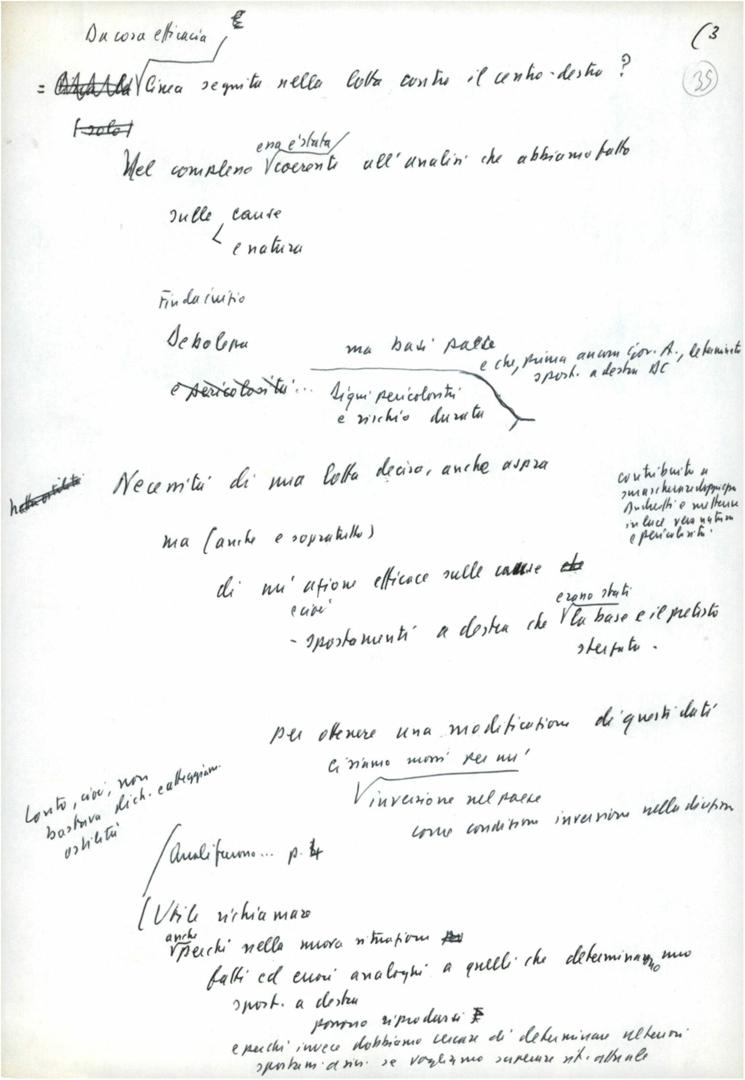 Da cosa efficacia
(3
35
= linea seguita nella lotta contro il centro-destra?
(solo)
essa è stata
Nel complesso coerente all'analisi che abbiamo fatto
sulle cause
e natura
Fin da inizio
Debolezza
ma basi salde
e che, prima ancora Gov. A., determinato
spost. a destra DC
e pericolosità...
Segni pericolosità
e rischio durata
Necessità di una lotta decisa, anche aspra
contribuito a
smascherare
Andreotti e mettere
in luce vera natura
e pericolosità.
ma (anche e sopratutto)
di un'azione efficace sulle cause che
e cioè
erano stati
- spostamenti a destra che la base e il pretesto
per ottenere una modificazione di questi dati
ci siamo mossi per un'
inversione nel paese
come condizione inversione nella direzione
cioè, non
bastava dich. e atteggiam.
ostilità
Quali furono... p. 4
(Utile richiamare
anche
perché nella nuova situazione
fatti ed errori analoghi a quelli che determinarono uno
spost. a destra
possono riprodursi
e perché invece dobbiamo cercare di determinare ulteriori
spostam. a sin. se vogliamo superare sit. attuale